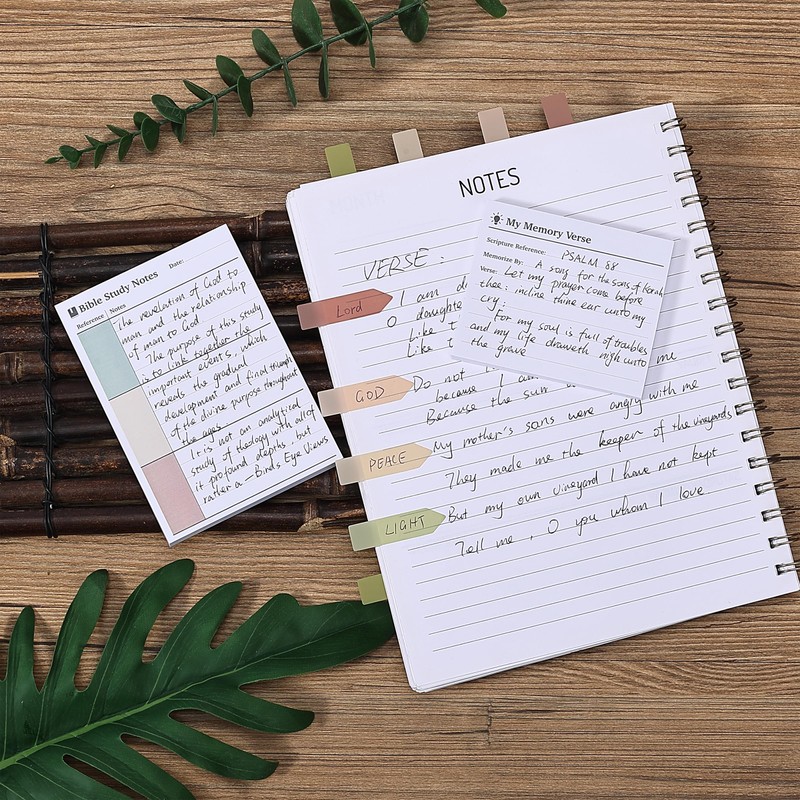 Bible Study Notes
Date:
Reference
Notes
The revelation of God to
man and the relationship
of man to God.
The purpose of this study
is to link together the
important events, which
reveals the gradual
development and final triumph
of the divine purpose throughout
the ages
It is not an analytical
study of theology with all of
it profound depths, but
rather a - Birds Eye Views
NOTES
VERSE.
I am
O daughte
Like
Like
Do not
me
because I am
Because the sun
My mother's sons were angry with me
They made me the keeper of the vineyards
But my own vineyard I have not kept
Tell me, O you whom I love
Lord
GOD
PEACE
LIGHT
My Memory Verse
Scripture Reference: PSALM 88
Memorize By: A song for the sons of Korah
Verse: Let my prayer come before
thee: incline thine ear unto my
cry;
For my soul is full of troubles
and my life draweth nigh unto
the grave